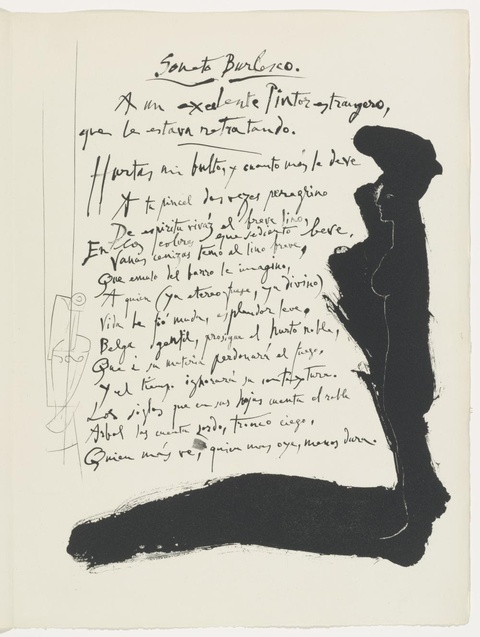 Soneto Burlesco.
A un excelente Pintor estrangero,
que le estava retratando.
Hurtas mi bulto, y cuanto más le deve
A tu pincel dos vezes peregrino
De espiritu vivaz el breve lino,
En los colores que sediento beve,
Vanas cenizas temo al lino breve,
Que emulo del barro le imagino,
A quien (ya etereo fuese, ya divino)
Vida le fió muda, esplendor leve,
Belga gentil, prosigue el hurto noble,
Que á su materia perdonará el fuego,
Y el tiempo ignorará su contextura.
Los siglos que en sus hojas cuenta el roble
Arbol los cuenta sordo, tronco ciego,
Quien más ve, quien mas oye, menos dura.